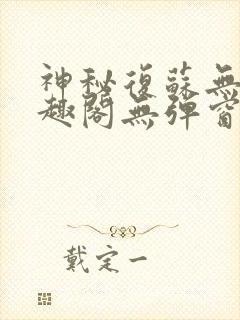 神秘復蘇無
趣閣無彈窗
戴定一